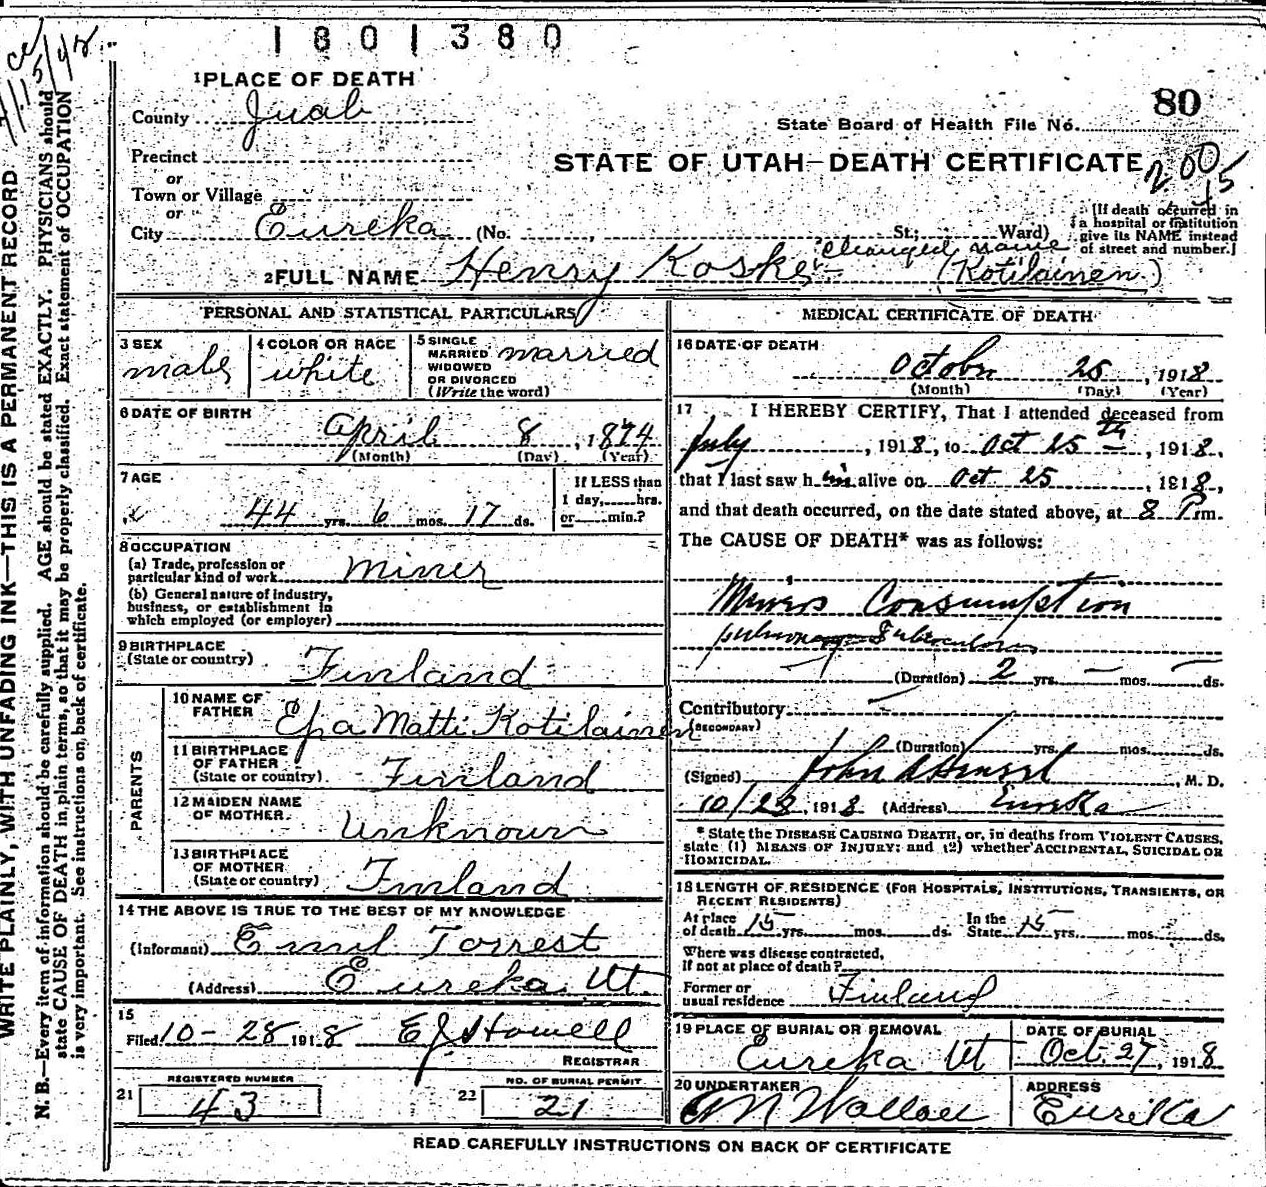 1801380
1 PLACE OF DEATH
County Juab
80
State Board of Health File No.
Precinct
STATE OF UTAH—DEATH CERTIFICATE
200
15
or
Town or Village
or
City Eureka (No. , St.; Ward)
[If death occurred in
a hospital or institution
give its NAME instead
of street and number.]
changed name
2 FULL NAME Henry Koski (Kotilainen)
PERSONAL AND STATISTICAL PARTICULARS
3 SEX
male
4 COLOR OR RACE
white
5 SINGLE
MARRIED
WIDOWED
OR DIVORCED
(Write the word)
married
6 DATE OF BIRTH
April 8, 1874
(Month) (Day) (Year)
7 AGE
44 yrs. 6 mos. 17 ds.
If LESS than
1 day, hrs.
or min.?
8 OCCUPATION
(a) Trade, profession or
particular kind of work
miner
(b) General nature of industry,
business, or establishment in
which employed (or employer)
9 BIRTHPLACE
(State or country)
Finland
PARENTS
10 NAME OF
FATHER
Matti Kotilainen
11 BIRTHPLACE
OF FATHER
(State or country)
Finland
12 MAIDEN NAME
OF MOTHER
Unknown
13 BIRTHPLACE
OF MOTHER
(State or country)
Finland
14 THE ABOVE IS TRUE TO THE BEST OF MY KNOWLEDGE
(Informant) Emil Torrest
(Address) Eureka Ut.
15
Filed 10-28 1918 E J Howell
REGISTRAR
21
REGISTERED NUMBER
43
22
NO. OF BURIAL PERMIT
21
MEDICAL CERTIFICATE OF DEATH
16 DATE OF DEATH
October 25, 1918
(Month) (Day) (Year)
17 I HEREBY CERTIFY, That I attended deceased from
July, 1918, to Oct 25th, 1918,
that I last saw him alive on Oct 25, 1918,
and that death occurred, on the date stated above, at 8 P m.
The CAUSE OF DEATH* was as follows:
Miners Consumption
pulmonary Tuberculosis
(Duration) 2 yrs. — mos. — ds.
Contributory
(SECONDARY)
(Duration) yrs. mos. ds.
(Signed) John , M. D.
10/28, 1918 (Address) Eureka
* State the DISEASE CAUSING DEATH, or, in deaths from VIOLENT CAUSES,
state (1) MEANS OF INJURY; and (2) whether ACCIDENTAL, SUICIDAL OR
HOMICIDAL.
18 LENGTH OF RESIDENCE (FOR HOSPITALS, INSTITUTIONS, TRANSIENTS, OR
RECENT RESIDENTS)
At place
of death 15 yrs. mos. ds.
In the
State 15 yrs. mos. ds.
Where was disease contracted,
If not at place of death?
Former or
usual residence Finland
19 PLACE OF BURIAL OR REMOVAL
Eureka Ut
DATE OF BURIAL
Oct. 27, 1918
20 UNDERTAKER
ADDRESS
Eureka
READ CAREFULLY INSTRUCTIONS ON BACK OF CERTIFICATE
WRITE PLAINLY, WITH UNFADING INK—THIS IS A PERMANENT RECORD
N. B.—Every item of information should be carefully supplied. AGE should be stated EXACTLY. PHYSICIANS should
state CAUSE OF DEATH in plain terms, so that it may be properly classified. Exact statement of OCCUPATION
is very important. See instructions on back of certificate.